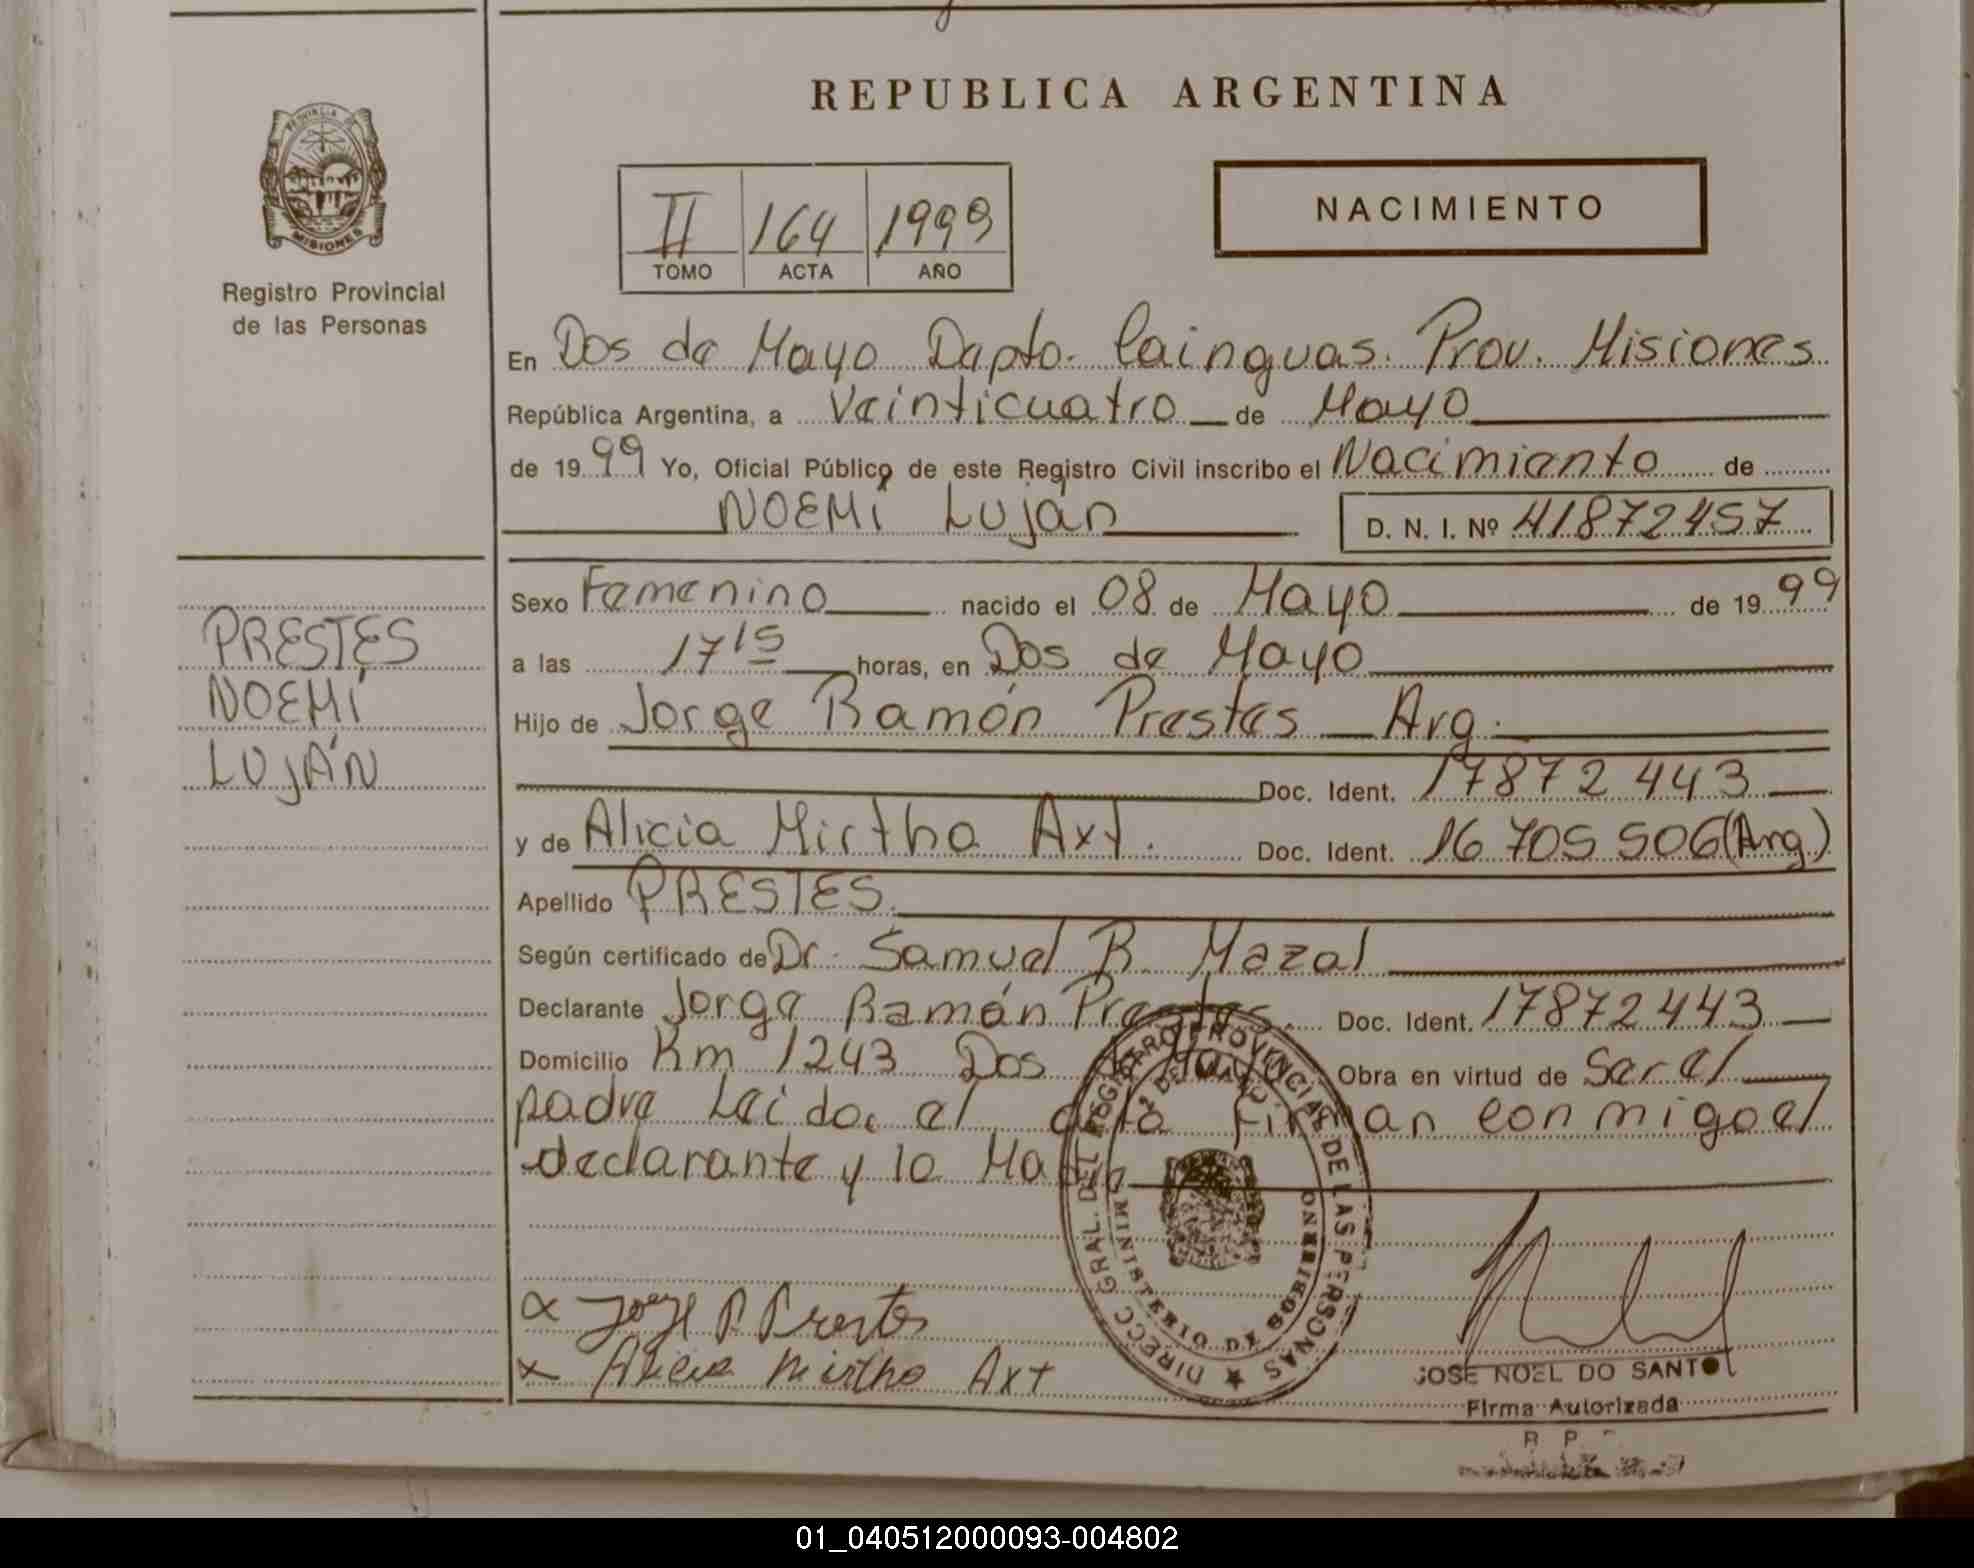 REPUBLICA ARGENTINA
PROVINCIA DE
MISIONES
Registro Provincial
de las Personas
II 164 1999
TOMO ACTA AÑO
NACIMIENTO
En Dos de Mayo Dapto. Cainguas. Prov. Misiones
República Argentina, a Veinticuatro de Mayo
de 1999 Yo, Oficial Público de este Registro Civil inscribo el Nacimiento de
NOEMÍ Luján D. N. I. Nº 41872457
PRESTES
NOEMÍ
LUJÁN
Sexo Femenino nacido el 08 de Mayo de 1999
a las 17 15 horas, en Dos de Mayo
Hijo de Jorge Ramón Prestes Arg.
Doc. Ident. 17872443
y de Alicia Mirtha Axt. Doc. Ident. 16 705 506 (Arg)
Apellido PRESTES
Según certificado de Dr. Samuel R. Mazal
Declarante Jorge Ramón Prestes. Doc. Ident. 17872443
Domicilio Km 1243 Dos de Mayo Obra en virtud de Ser el
padre Leido, el acta Firman conmigo el
declarante y la Madre
DIRECC GRAL. DEL REGISTRO PROVINCIAL DE LAS PERSONAS
MINISTERIO DE GOBIERNO
DOS DE MAYO
x Jorge R Prestes
x Alicia Mirtha Axt
JOSE NOEL DO SANTO
Firma Autorizada
R P
01_040512000093-004802